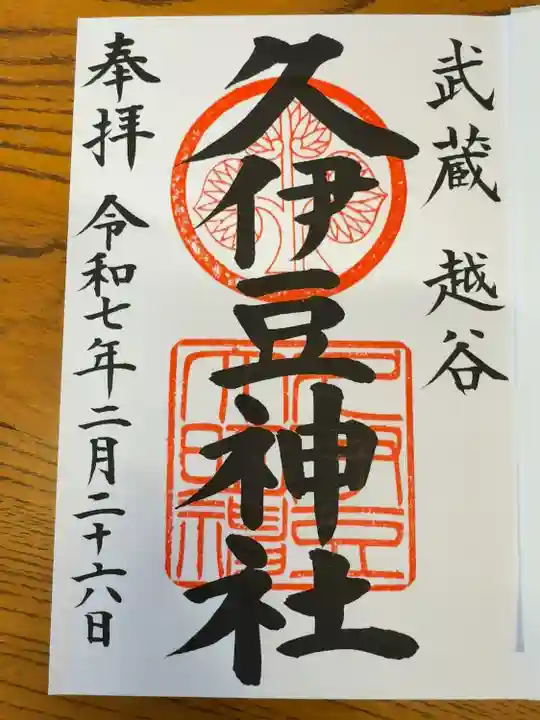 武蔵 越谷
久伊豆神社
奉拝 令和七年二月二十六日